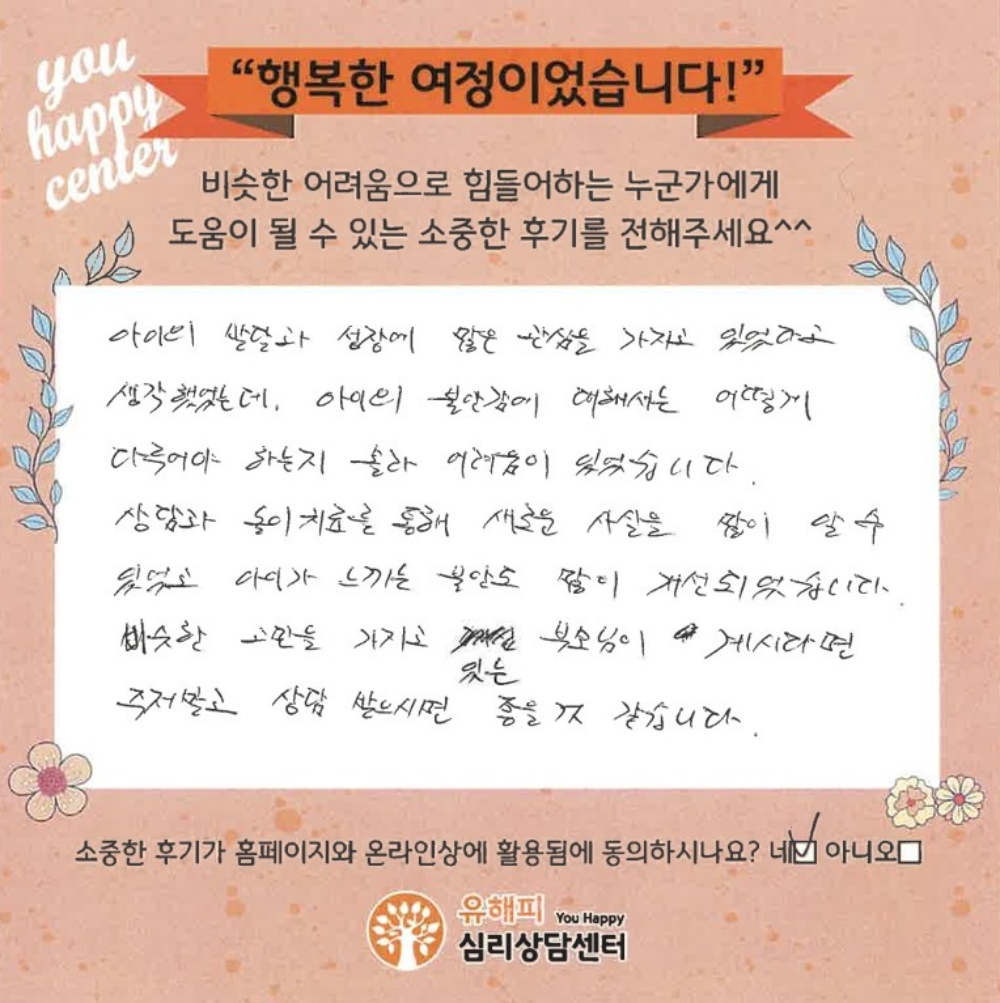 you
happy
center
“행복한 여정이었습니다!”
비슷한 어려움으로 힘들어하는 누군가에게
도움이 될 수 있는 소중한 후기를 전해주세요^^
아이의 발달과 성장에 많은 관심을 가지고 있었다고
생각했었는데, 아이의 불안감에 대해서는 어떻게
다루어야 하는지 몰라 어려움이 있었습니다.
상담과 놀이치료를 통해 새로운 사실을 많이 알 수
있었고 아이가 느끼는 불안도 많이 개선되었습니다.
비슷한 고민을 가지고 있는 부모님이 계시다면
주저말고 상담 받으시면 좋을 것 같습니다.
소중한 후기가 홈페이지와 온라인상에 활용됨에 동의하시나요? 네☑ 아니오□
유해피 You Happy
심리상담센터